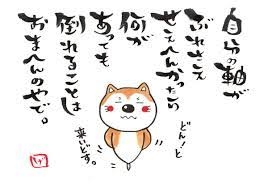 自分の軸が
ぶれさえ
せえへんかったら
何が
あっても
倒れることは
おまへんのやで。
どん!と
来いどす。